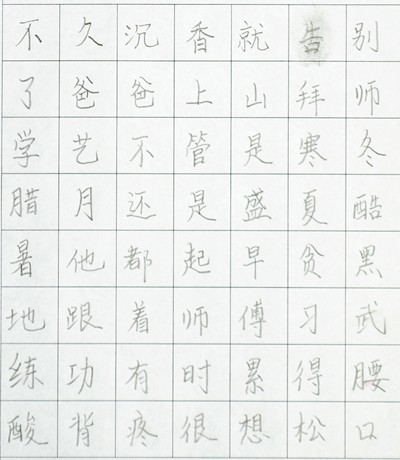 不久沉香就告别
了爸爸上山拜师
学艺不管是寒冬
腊月还是盛夏酷
暑他都起早贪黑
地跟着师傅习武
练功有时累得腰
酸背疼很想松口